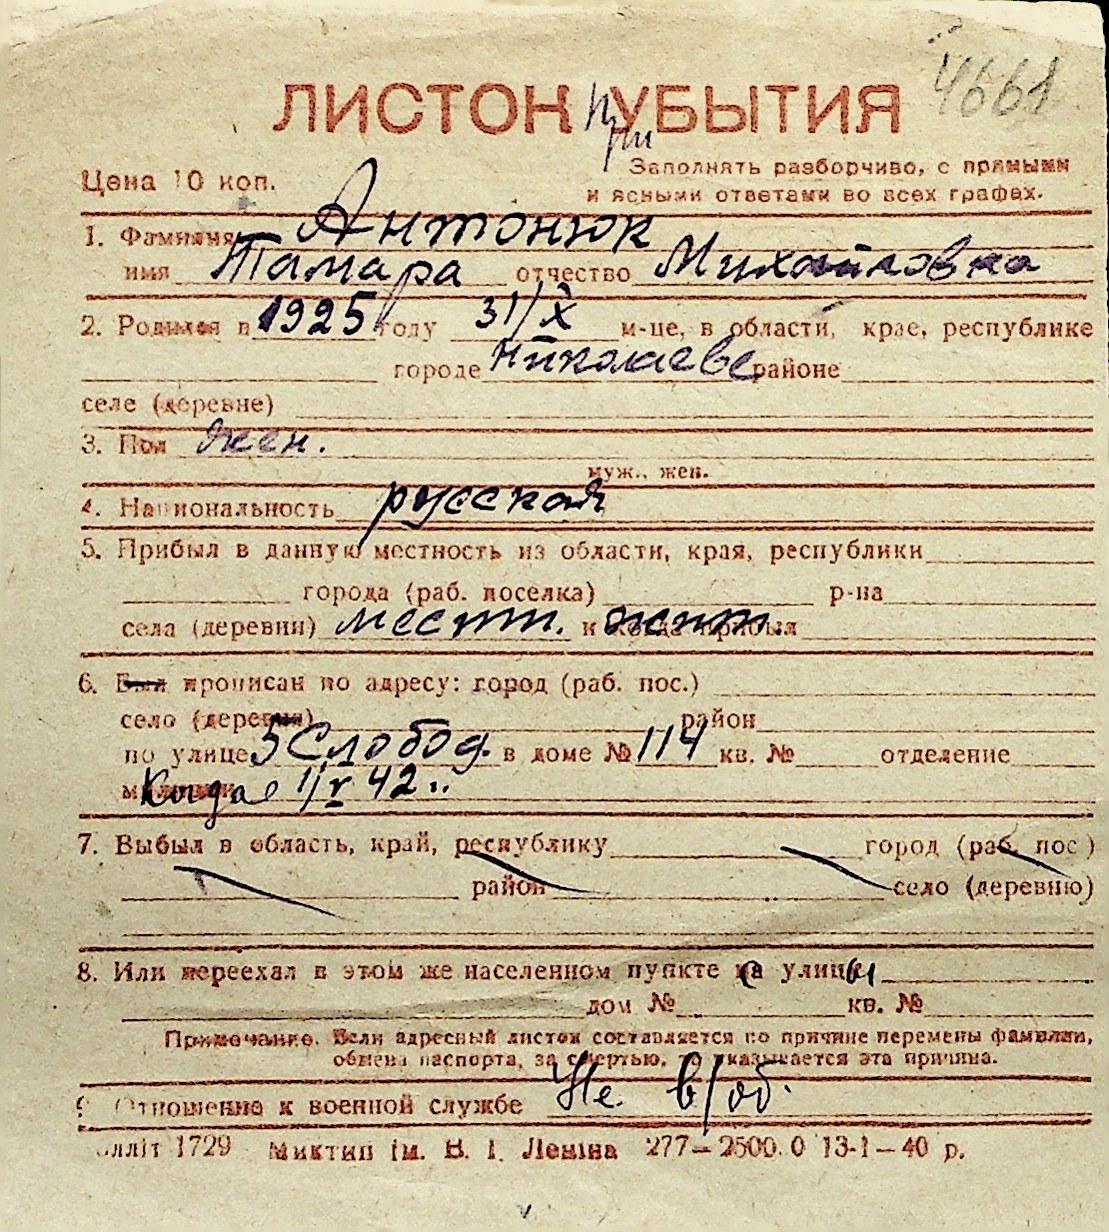 4661
ЛИСТОК при УБЫТИЯ
Цена 10 коп.
Заполнять разборчиво, с прямыми
и ясными ответами во всех графах.
1. Фамилия Антонюк
имя Тамара отчество Михайловна
2. Родился в 1925 году 31/X м-це, в области, крае, республике
городе Николаеве районе
селе (деревне)
3. Пол жен.
муж., жен.
4. Национальность русская
5. Прибыл в данную местность из области, края, республики
города (раб. поселка) р-на
села (деревни) местн. жит. и когда прибыл
6. Был прописан по адресу: город (раб. пос.)
село (деревня) район
по улице 5 Слобод. в доме № 114 кв. № отделение
милиции Когда 1/V 42 г.
7. Выбыл в область, край, республику город (раб. пос.)
район село (деревню)
8. Или переехал в этом же населенном пункте с улицы
дом № кв. №
Примечание. Если адресный листок составляется по причине перемены фамилии,
обмена паспорта, за смертью, то указывается эта причина.
9. Отношение к военной службе Не в/об.
1729 Миктип ім. В. І. Леніна 277–2500. О 13-1–40 р.